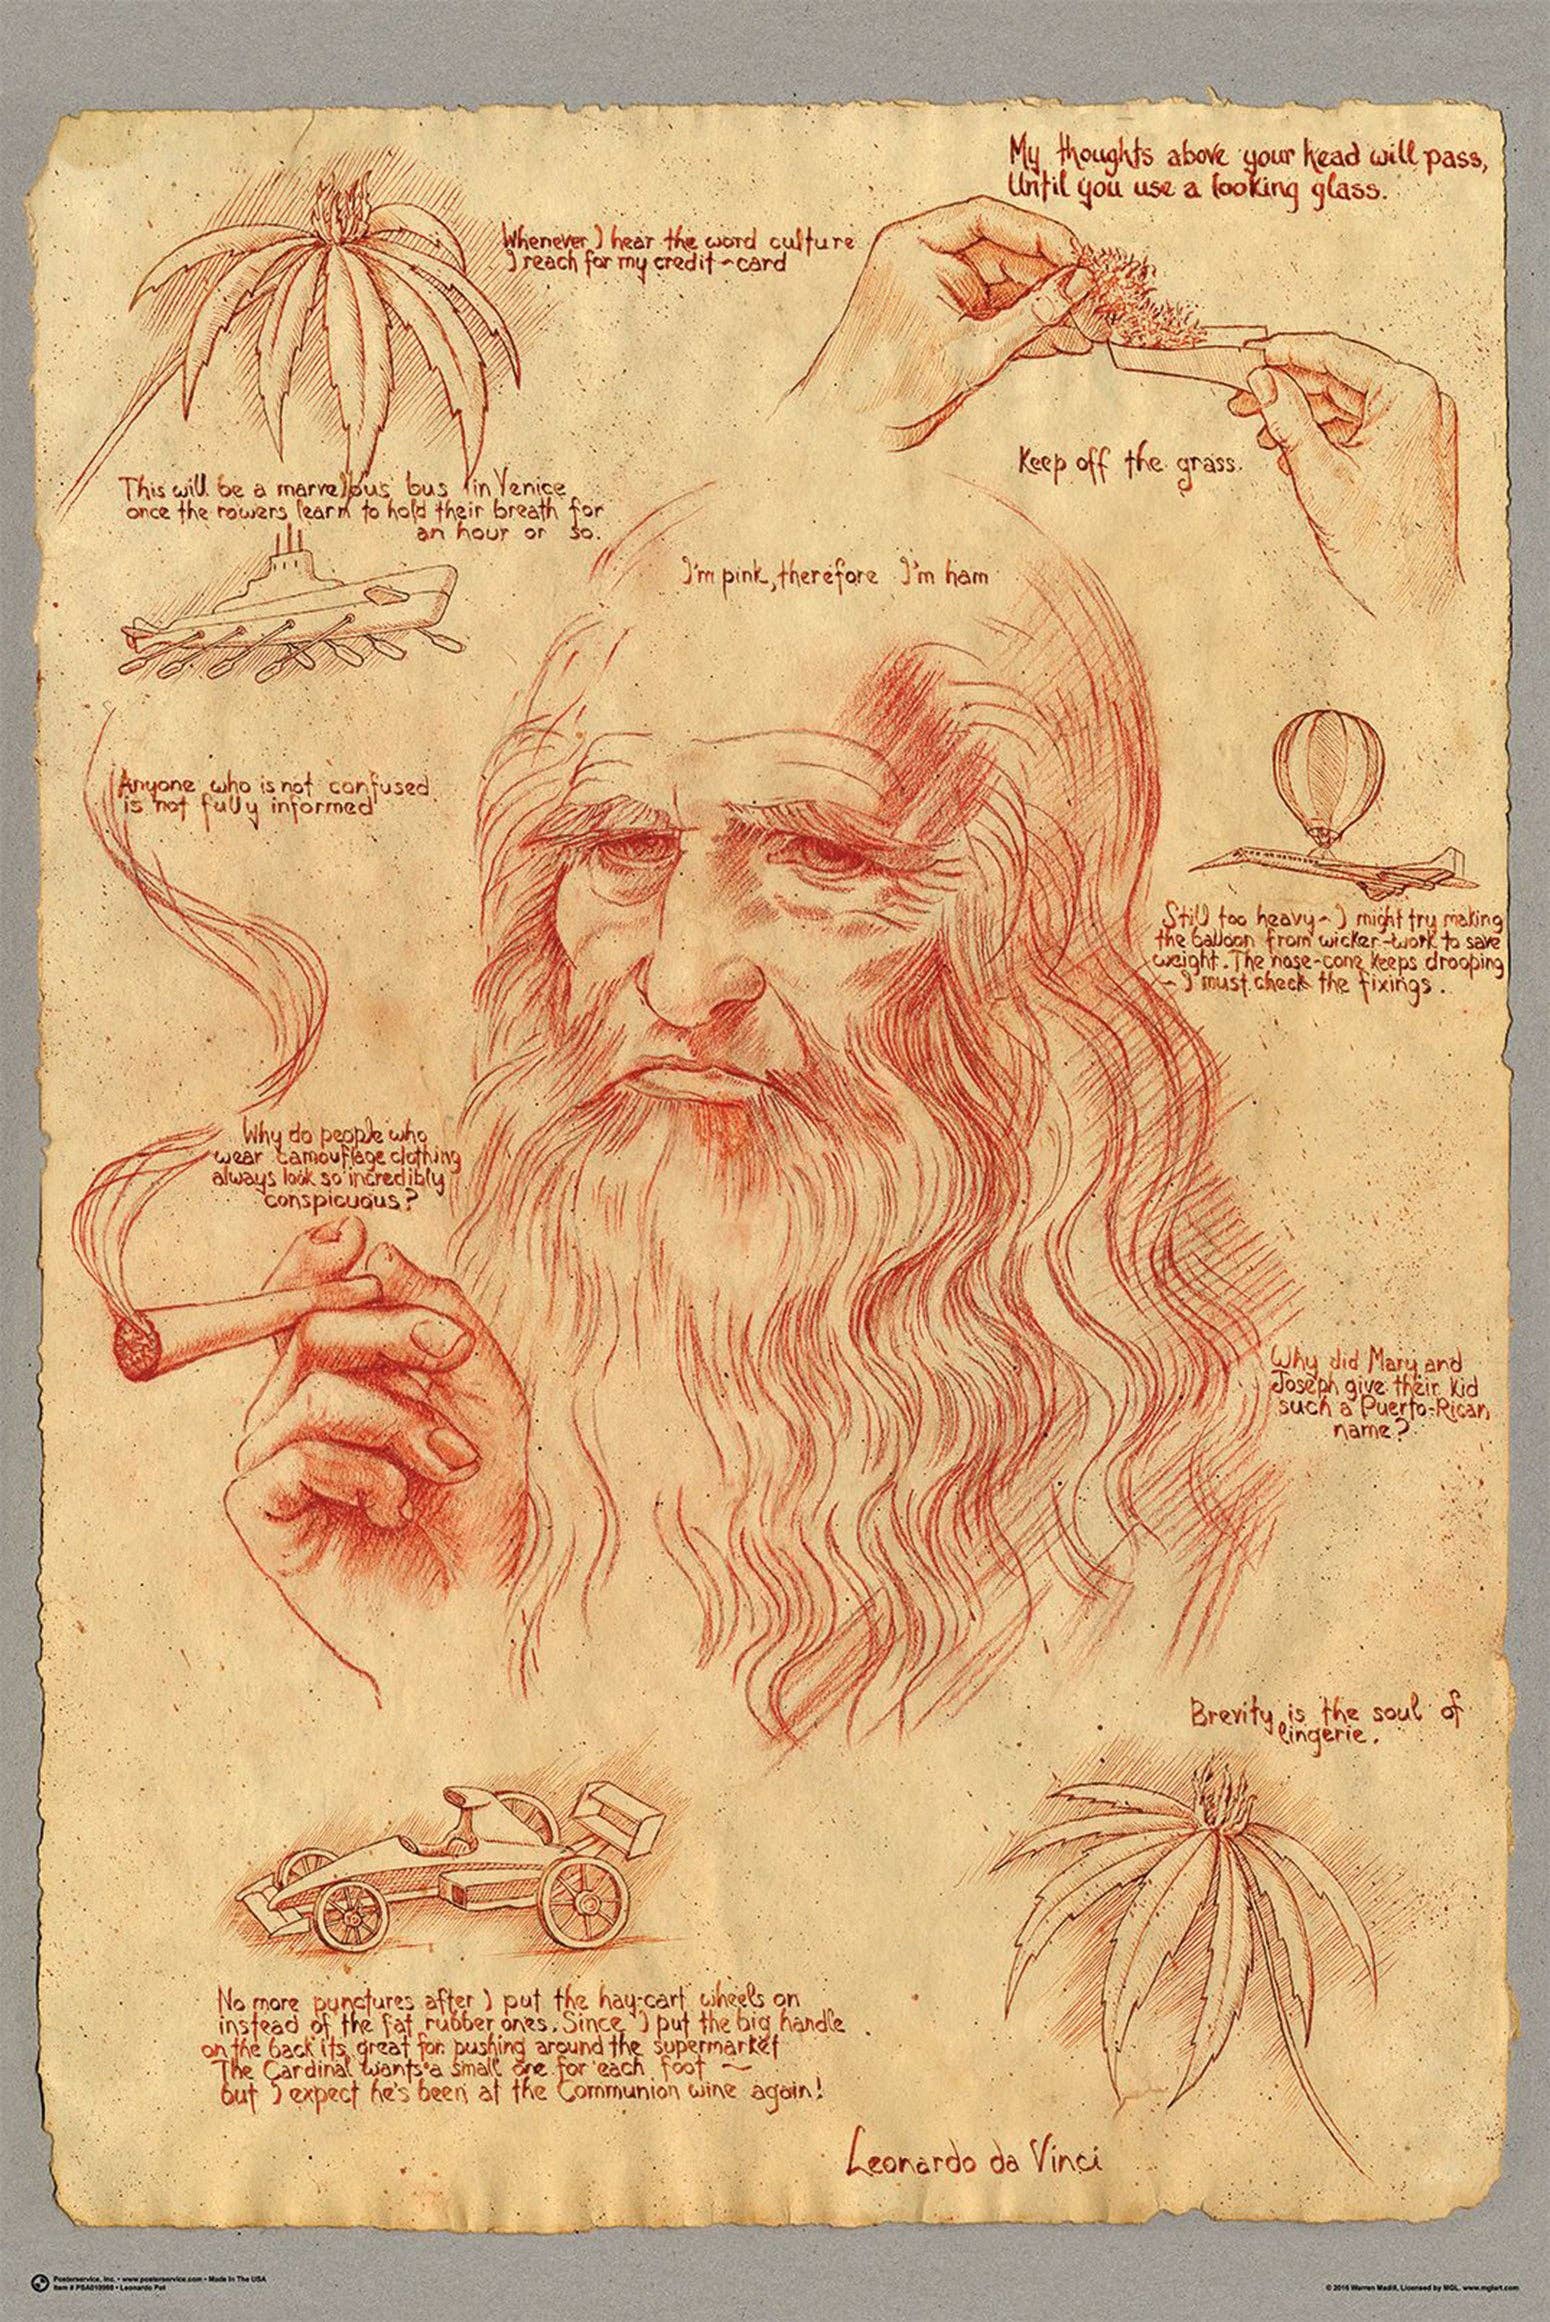 My thoughts above your head will pass,
Until you use a looking glass.
Whenever I hear the word culture
I reach for my credit-card
Keep off the grass.
This will be a marvellous bus in Venice
once the rowers learn to hold their breath for
an hour or so.
I'm pink, therefore I'm ham
Anyone who is not confused
is not fully informed
Still too heavy - I might try making
the balloon from wicker-work to save
weight. The nose-cone keeps drooping
- I must check the fixings.
Why do people who
wear camouflage clothing
always look so incredibly
conspicuous?
Why did Mary and
Joseph give their kid
such a Puerto-Rican
name?
Brevity is the soul of
lingerie.
No more punctures after I put the hay-cart wheels on
instead of the fat rubber ones. Since I put the big handle
on the back its great for pushing around the supermarket
The Cardinal wants a small one for each foot ~
but I expect he's been at the Communion wine again!
Leonardo da Vinci
Posterservice, Inc. • www.posterservice.com • Made In The USA
Item # PSA010980 • Leonardo Pot
© 2016 Warren Madill, Licensed by MGL. www.mglart.com